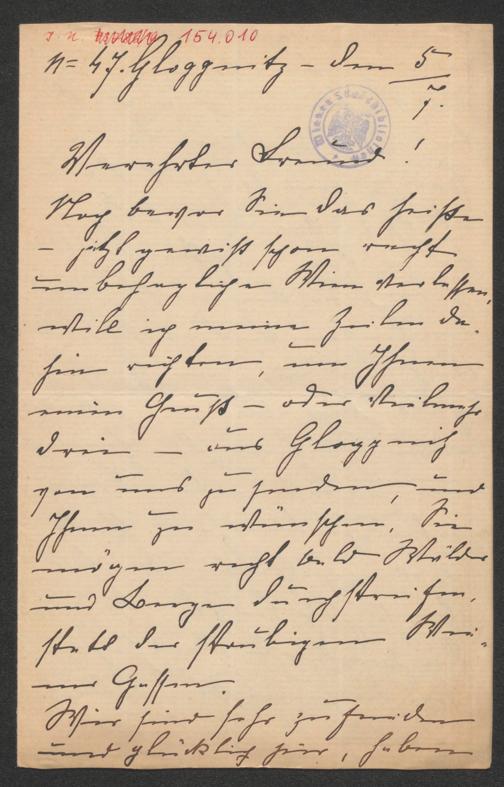 J. N. 154.010
N= 47. Gloggnitz – den 5/7.
Wiener Stadtbibliothek
Verehrter Freund!
Noch bevor Sie das heiße
– jetzt gewiß schon recht
unbehagliche Wien verlassen,
will ich meine Zeilen da-
hin richten, um Ihnen
einen Gruß – oder vielmehr
drei – aus Gloggnitz
von uns zu senden, und
Ihnen zu wünschen, Sie
mögen recht bald Wälder
und Berge durchstreifen,
statt der staubigen Wie-
ner Gassen.
Wir sind sehr zufrieden
und glücklich hier, haben